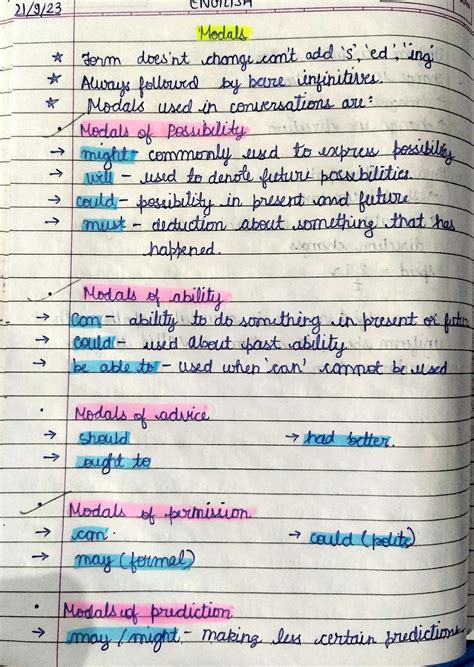 21/9/23
ENGLISH
Modals
* Form does'nt change can't add 's', 'ed', 'ing'
* Always followed by bare infinitives.
* Modals used in conversations are:
• Modals of Possibility
→ might - commonly used to express possibility
→ will - used to denote future possibilities.
→ could - possibility in present and future
→ must - deduction about something that has
happened.
• Modals of ability
→ can - ability to do something in present or future
→ could - used about past ability
→ be able to - used when 'can' cannot be used
• Modals of advice
→ should → had better.
→ ought to
• Modals of permission
→ can. → could (polite)
→ may (formal)
• Modals of prediction
→ may / might - making less certain predictions